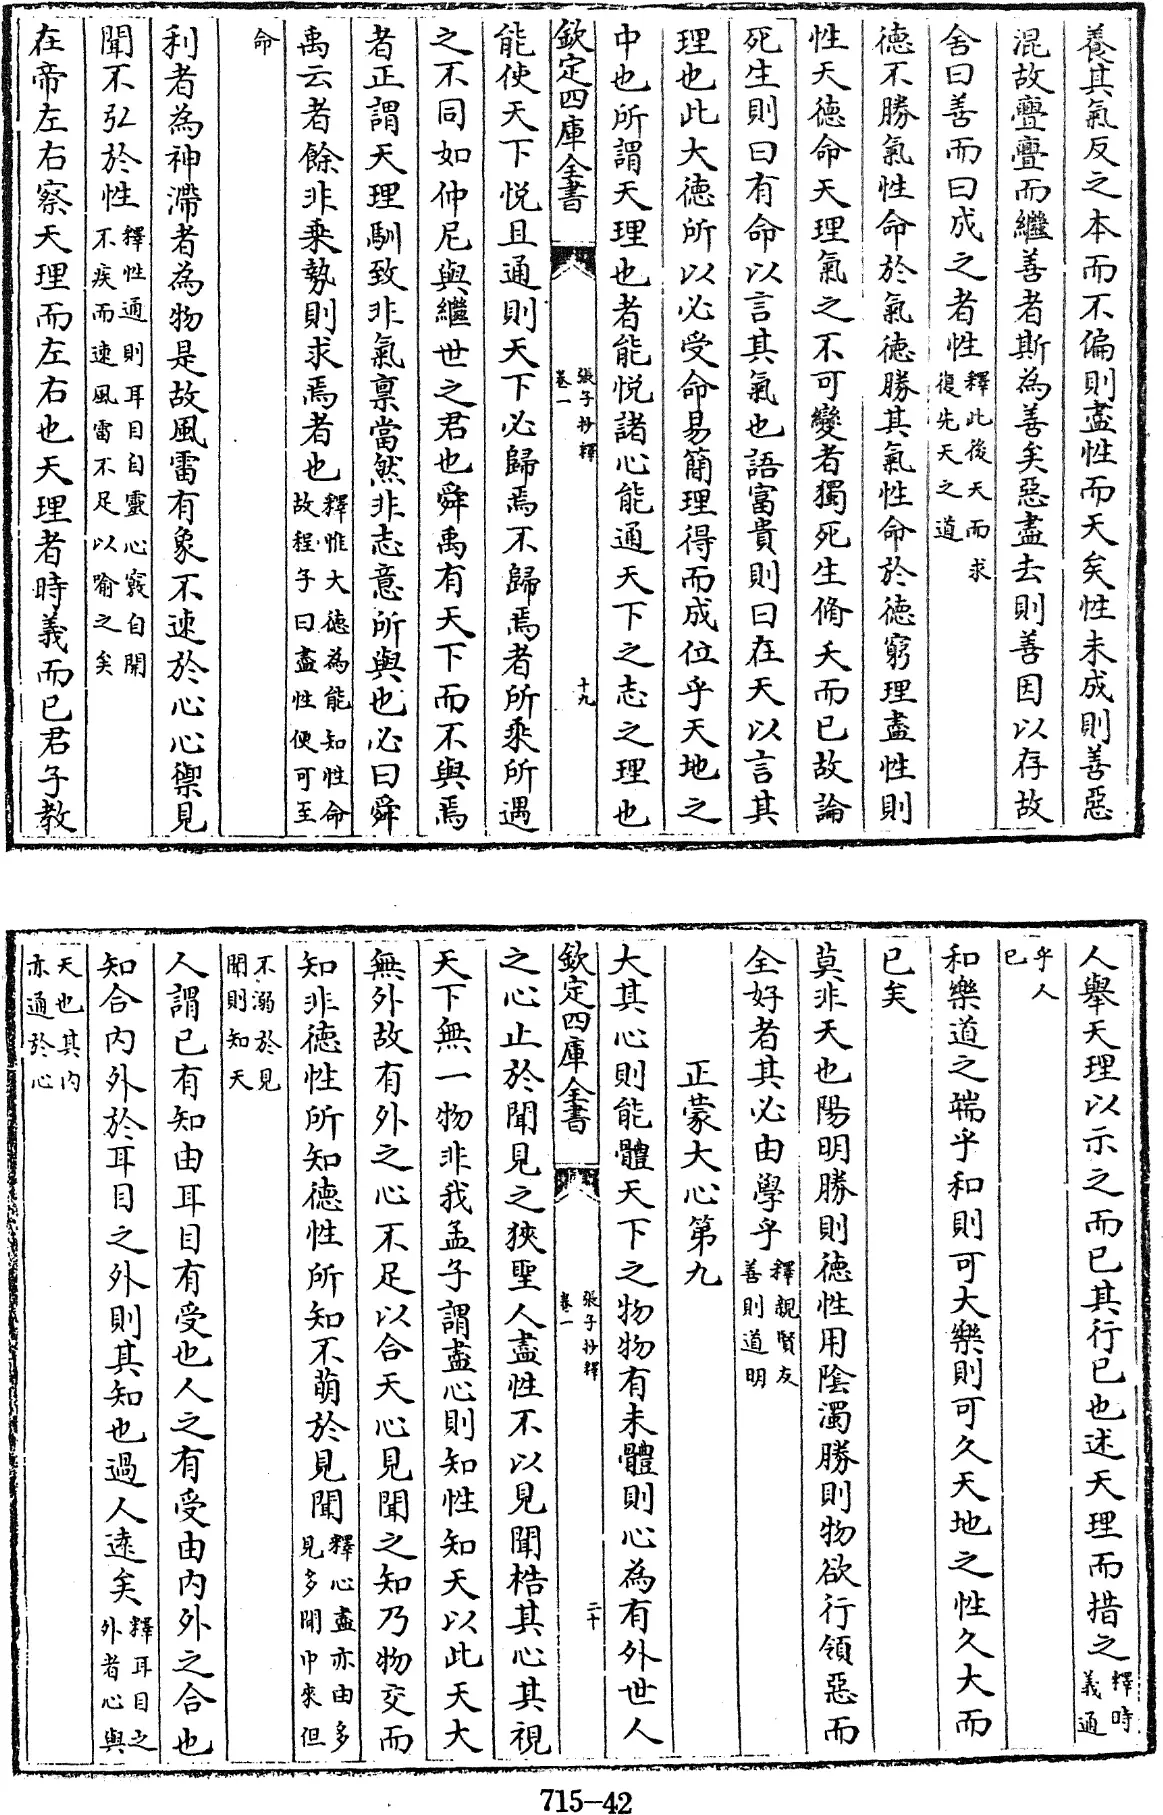 養其氣反之本而不偏則盡性而天矣性未成則善惡
混故亹亹而繼善者斯為善矣惡盡去則善因以存故
舍曰善而曰成之者性釋此後天而求復先天之道
德不勝氣性命於氣德勝其氣性命於德窮理盡性則
性天德命天理氣之不可變者獨死生脩夭而已故論
死生則曰有命以言其氣也語富貴則曰在天以言其
理也此大德所以必受命易簡理得而成位乎天地之
中也所謂天理也者能悅諸心能通天下之志之理也
欽定四庫全書 張子抄釋 卷一 十九
能使天下悅且通則天下必歸焉不歸焉者所乘所遇
之不同如仲尼與繼世之君也舜禹有天下而不與焉
者正謂天理馴致非氣禀當然非志意所與也必曰舜
禹云者餘非乘勢則求焉者也釋惟大德為能知性命故程子曰盡性便可至
命
利者為神滯者為物是故風雷有象不速於心心禦見
聞不弘於性釋性通則耳目自靈心竅自開不疾而速風雷不足以喻之矣
在帝左右察天理而左右也天理者時義而已君子教
人舉天理以示之而已其行已也述天理而措之釋時義通
乎人已
和樂道之端乎和則可大樂則可久天地之性久大而
已矣
莫非天也陽明勝則德性用陰濁勝則物欲行領惡而
全好者其必由學乎釋親賢友善則道明
正蒙大心第九
大其心則能體天下之物物有未體則心為有外世人
欽定四庫全書 張子抄釋 卷一 二十
之心止於聞見之狹聖人盡性不以見聞梏其心其視
天下無一物非我孟子謂盡心則知性知天以此天大
無外故有外之心不足以合天心見聞之知乃物交而
知非德性所知德性所知不萌於見聞釋心盡亦由多見多聞中來但
不溺於見聞則知天
人謂已有知由耳目有受也人之有受由內外之合也
知合內外於耳目之外則其知也過人遠矣釋耳目之外者心與
天也其內亦通於心
715-42